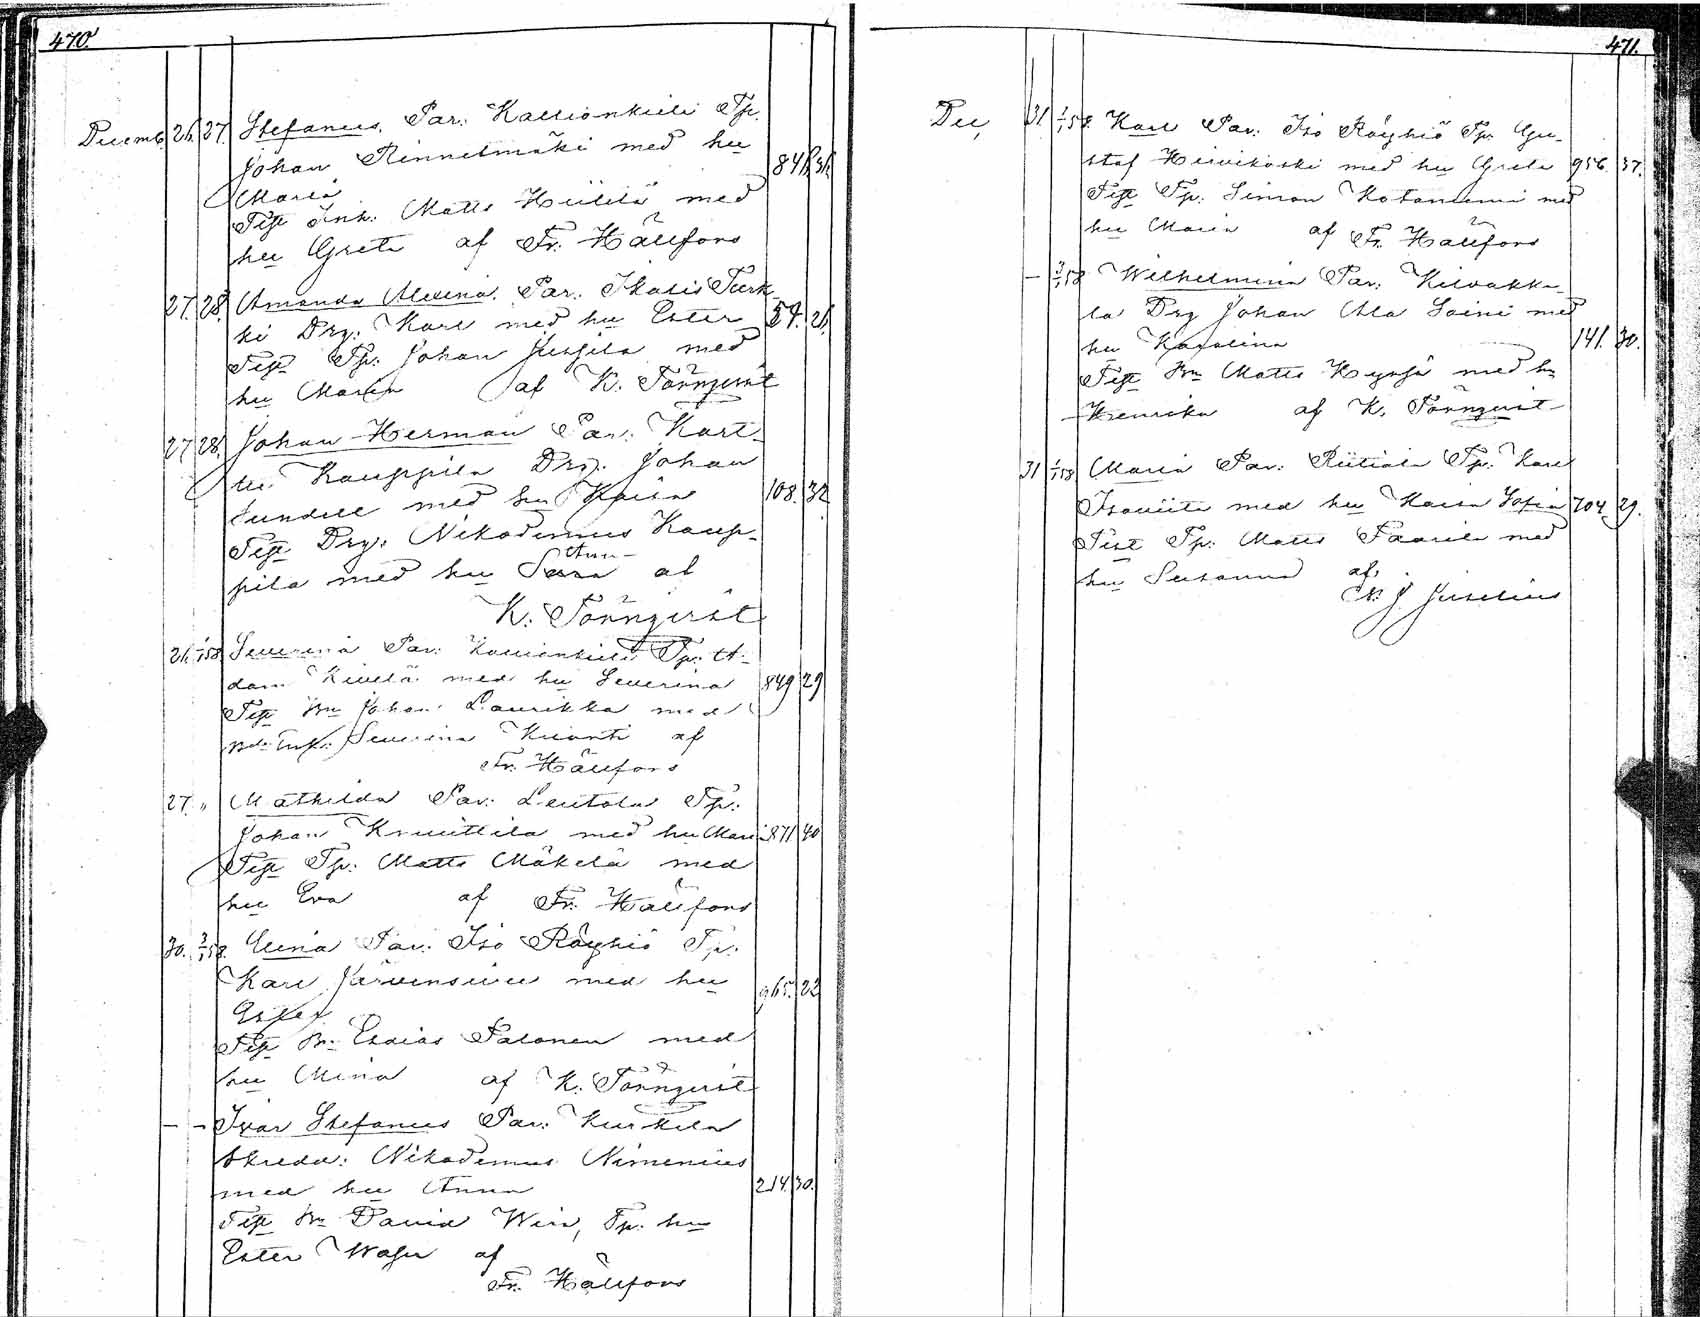 470.
Decemb. 26. 27. Stefanus. Par: Kallionkieli Tp.
Johan Rinnelmäki med hu 846. 36.
Maria
Test Inh: Matts Heikkilä med
hu Greta af Fr. Hällfors
27. 28. Amanda Alexina. Par: Ikalis Turk-
ki Drg: Karl med hu Ester 57. 26.
Test Tp: Johan Jussila med
hu Maria af K. Törnqvist
27 28. Johan Herman Par: Kart-
tu Kauppila Drg: Johan
Lundell med hu Kaisa 108. 32
Test Drg: Nikodemus Kaup-
pila med hu Anna af
K. Törnqvist
26. 1/1 58 Severina Par: Kallionkieli Tp: A-
dam Kivelä med hu Severina 849 29
Test Bn Johan Laurikka med
Severina Kivinti af
Fr. Hällfors
27. " Mathilda Par: Leutola Tp:
Johan Knuuttila med hu Mari 871 40
Test Tp: Matts Mäkelä med
hu Eva af Fr. Hällfors
30. 3/1 58. Elina Par: Iso Röyhiö Tp:
Karl Järvensivu med hu 965. 22
Ester
Test Bn Esaias Salonen med
hu Mina af K. Törnqvist
– – Ivar Stefanus Par: Kurkela
Skredd: Nikodemus Nimenius
med hu Anna 214. 30.
Test Bn David Wiri, Tp: hu
Ester af
Fr. Hällfors
471.
Dec, 31. 1/1 58. Karl Par: Iso Röyhiö Tp: Gu-
staf Heivikoski med hu Greta 956. 37.
Test Tp. Simon Kotaniemi med
hu Maria af Fr. Hällfors
– 3/1 58 Wilhelmina Par: Kilvakka-
la Drg Johan Ala Soini med
hu Karolina 141. 30.
Test Bn Matts Kynsjä med hu
Henrika af K. Törnqvist
31 1/1 58 Maria Par: Riitiala Tp: Karl
Isoviita med hu Kaisa Sofia 704. 29.
Test Tp: Matts Paavila med
hu Susanna af
N. J. Juselius